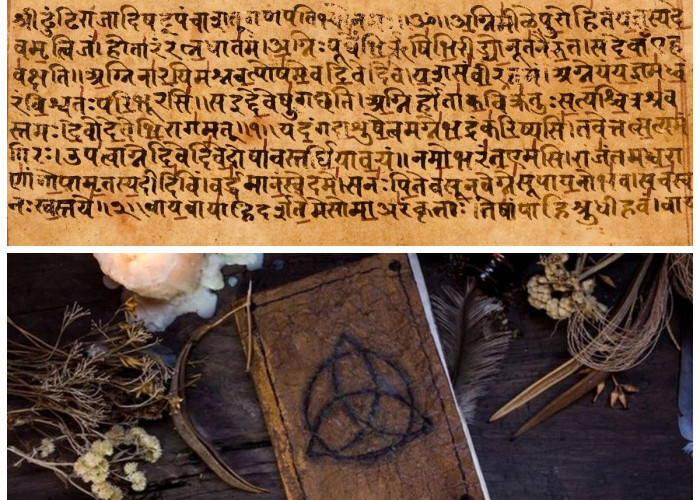 श्री ढुंढिराजादिषट्पंचा गणपतिभ्यो नमः॥ॐ॥अग्निमीळेपुरोहितंयज्ञस्यदे
वमृत्विजं।होतारंरत्नधातमम्।अग्निःपूर्वेभिर्ऋषिभिरीड्योनूतनैरुत।सदेवाँएह
वक्षति॥अग्निनारयिमश्नवत्पोषमेवदिवेदिवे।यशसंवीरवत्तमं।अग्नेयंयज्ञमध्व
रंविश्वतःपरिभूरसि॥सइद्देवेषुगच्छति।अग्निर्होताकविक्रतुःसत्यश्चित्रश्रव
स्तमः।देवोदेवेभिरागमत्॥१॥यदंगदाशुषेत्वमग्नेभद्रंकरिष्यसि।तवेत्तत्सत्यमं
गिरः।उपत्वाग्नेदिवेदिवेदोषावस्तर्द्धियावयं॥नमोभरंतएमसि।राजंतमध्वरा
णांगोपामृतस्यदीदिविं।वर्द्धमानंस्वेदमे।सनःपितेवसूनवेग्नेसूपायनोभव।सचस्वा
नःस्वस्तये॥२॥वायवायाहिदर्शतेमेसोमाअरंकृताः।तेषांपाहिश्रुधीहवं।वाय